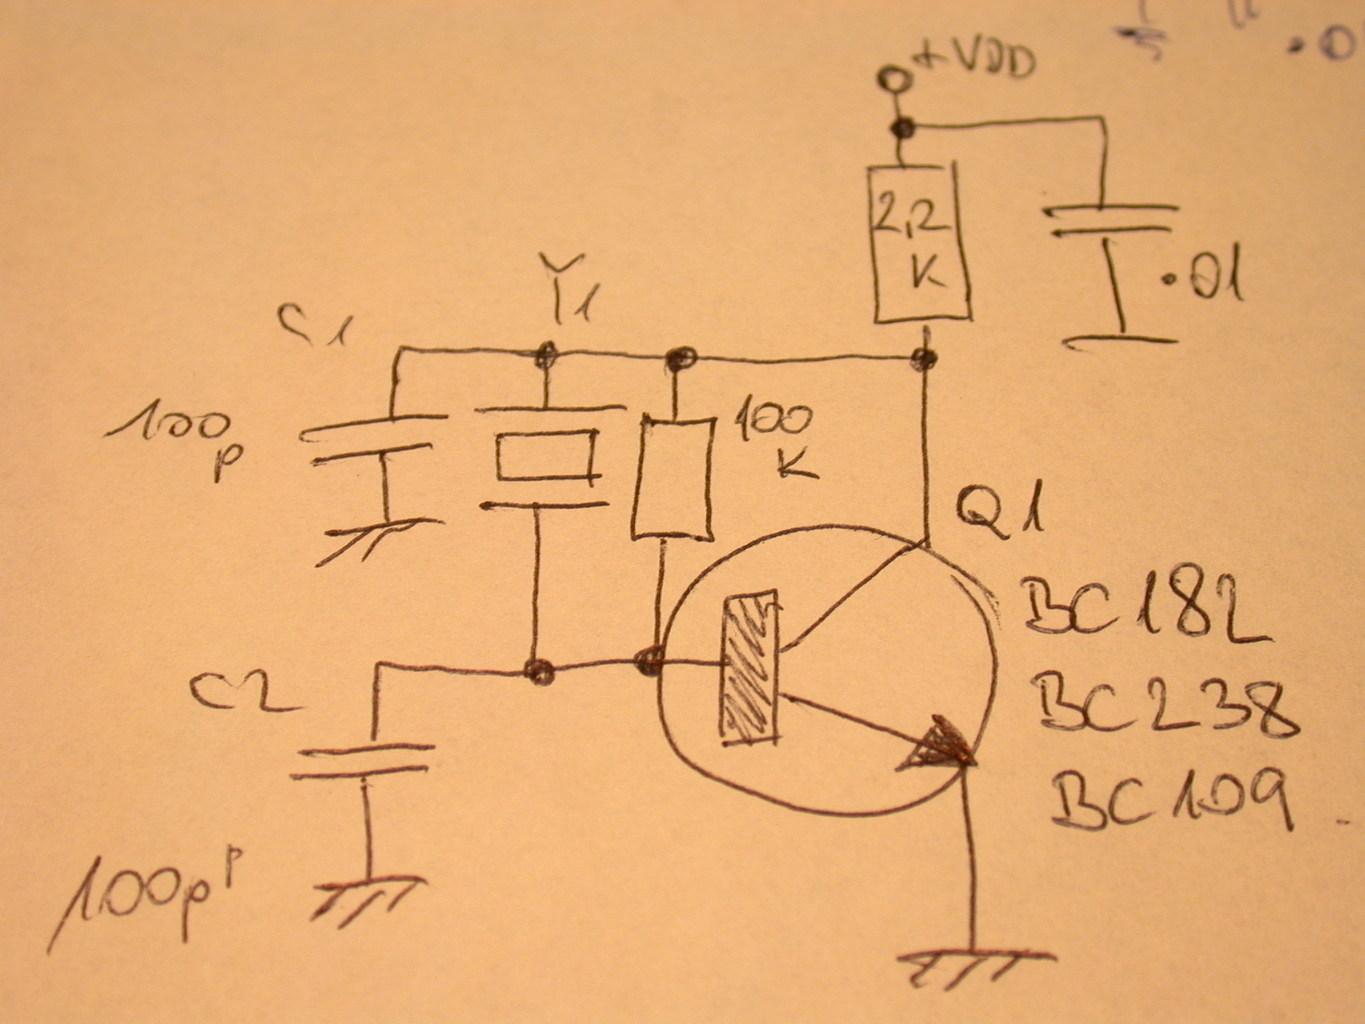 +VDD
2,2
K
.01
Y1
C1
100
p
100
K
Q1
BC182
BC238
BC109
C2
100p